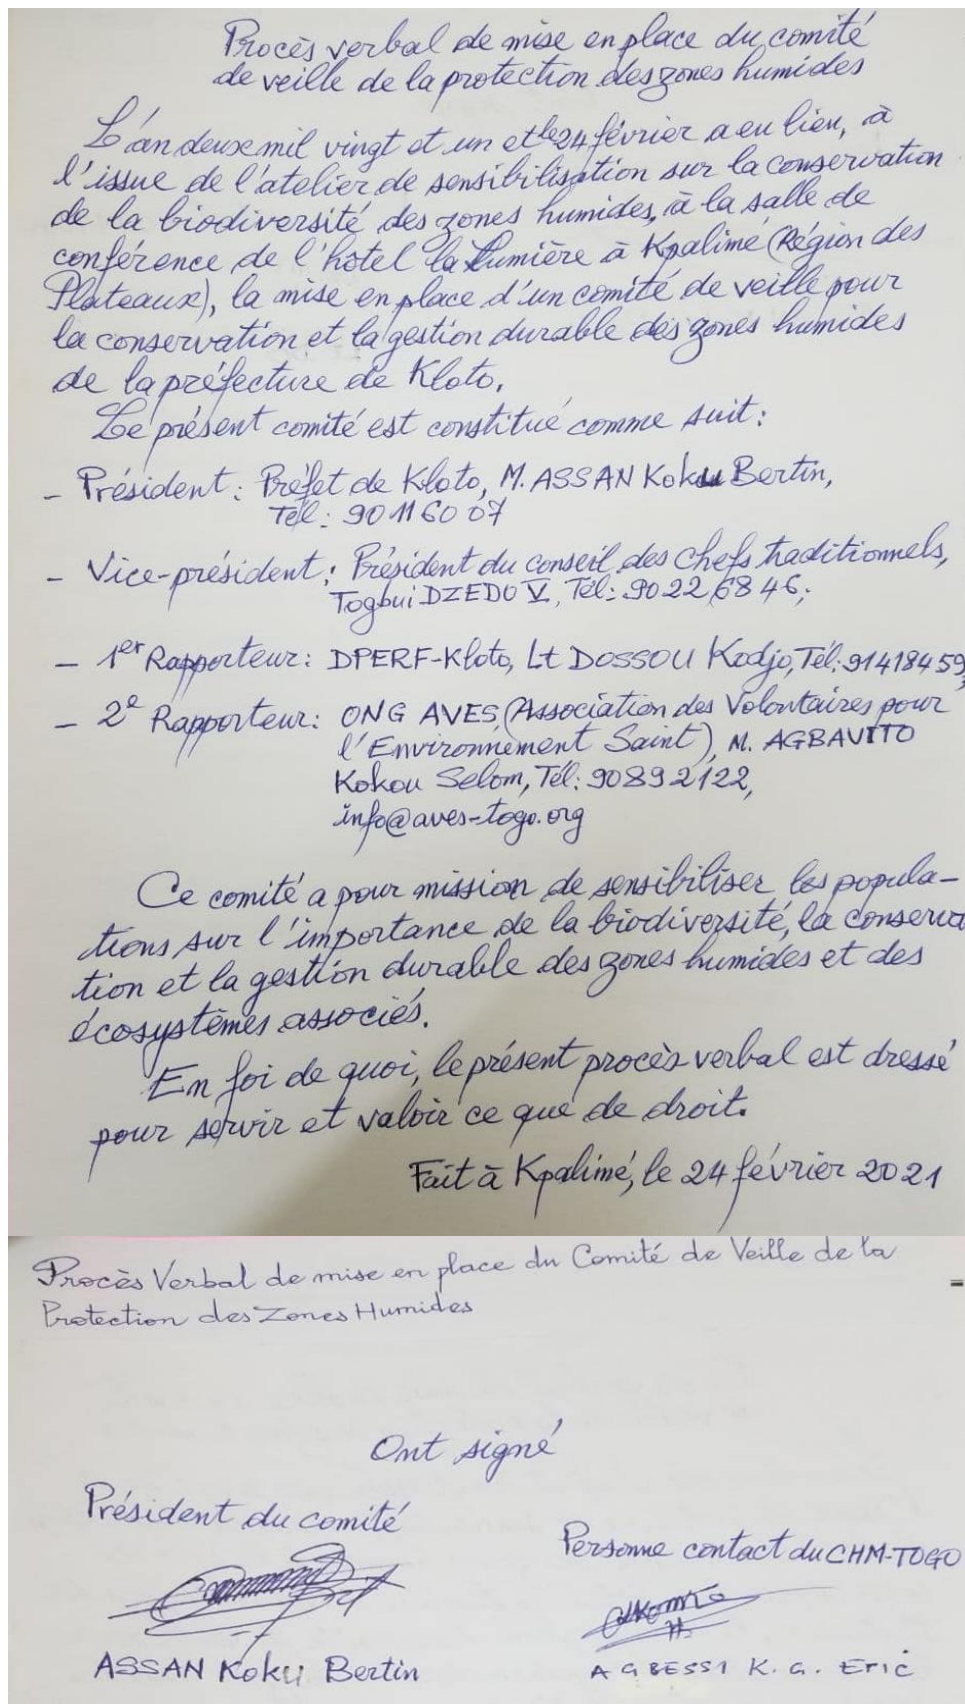 Procès verbal de mise en place du comité
de veille de la protection des zones humides
L'an deux mil vingt et un et le 24 février a eu lieu, à
l'issue de l'atelier de sensibilisation sur la conservation
de la biodiversité des zones humides, à la salle de
conférence de l'hôtel la Lumière à Kpalimé (Région des
Plateaux), la mise en place d'un comité de veille pour
la conservation et la gestion durable des zones humides
de la préfecture de Kloto.
Le présent comité est constitué comme suit :
- Président : Préfet de Kloto, M. ASSAN Koku Bertin,
Tél : 90 11 60 07
- Vice-président : Président du conseil des chefs traditionnels,
Togbui DZEDO V, Tél : 90 22 68 46;
- 1er Rapporteur : DPERF-Kloto, Lt DOSSOU Kodjo, Tél : 91418459,
- 2e Rapporteur : ONG AVES (Association des Volontaires pour
l'Environnement Saint), M. AGBAVITO
Kokou Selom, Tél : 90892122,
info@aves-togo.org
Ce comité a pour mission de sensibiliser les popula-
tions sur l'importance de la biodiversité, la conserva
tion et la gestion durable des zones humides et des
écosystèmes associés.
En foi de quoi, le présent procès-verbal est dressé
pour servir et valoir ce que de droit.
Fait à Kpalimé, le 24 février 2021
Procès Verbal de mise en place du Comité de Veille de la
Protection des Zones Humides
Ont signé
Président du comité
Personne contact du CHM-TOGO
ASSAN Koku Bertin
AGBESSI K. G. Eric